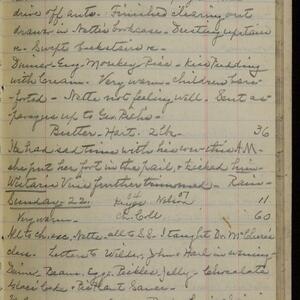 drive off auto. Finished clearing out
drawer in Nettie's bookcase - Dusting upstairs
- Swept backstairs
Dinner - Eng. Monkey Pies - Rice Pudding
with Cream. Very warm - children bare-
footed - Nette not feeling well. Sent as-
paragus up to Geo.
Butter - Hart. 2 lb. 36
He had sad time with his cow this A.M.
she put her foot in the pail & kicked him
further trimmed - Rain
Sunday - 22 - 11
Very warm - Ch. Coll 60
All to ch. exc. Nette. all to S.S. I taught Dr. McClure's
class. Letters to Wilder, John & Harl in evening
Dinn. Beans. Eggs. Pickles, Jelly - Chocolate
& Rhubarb Sauce -